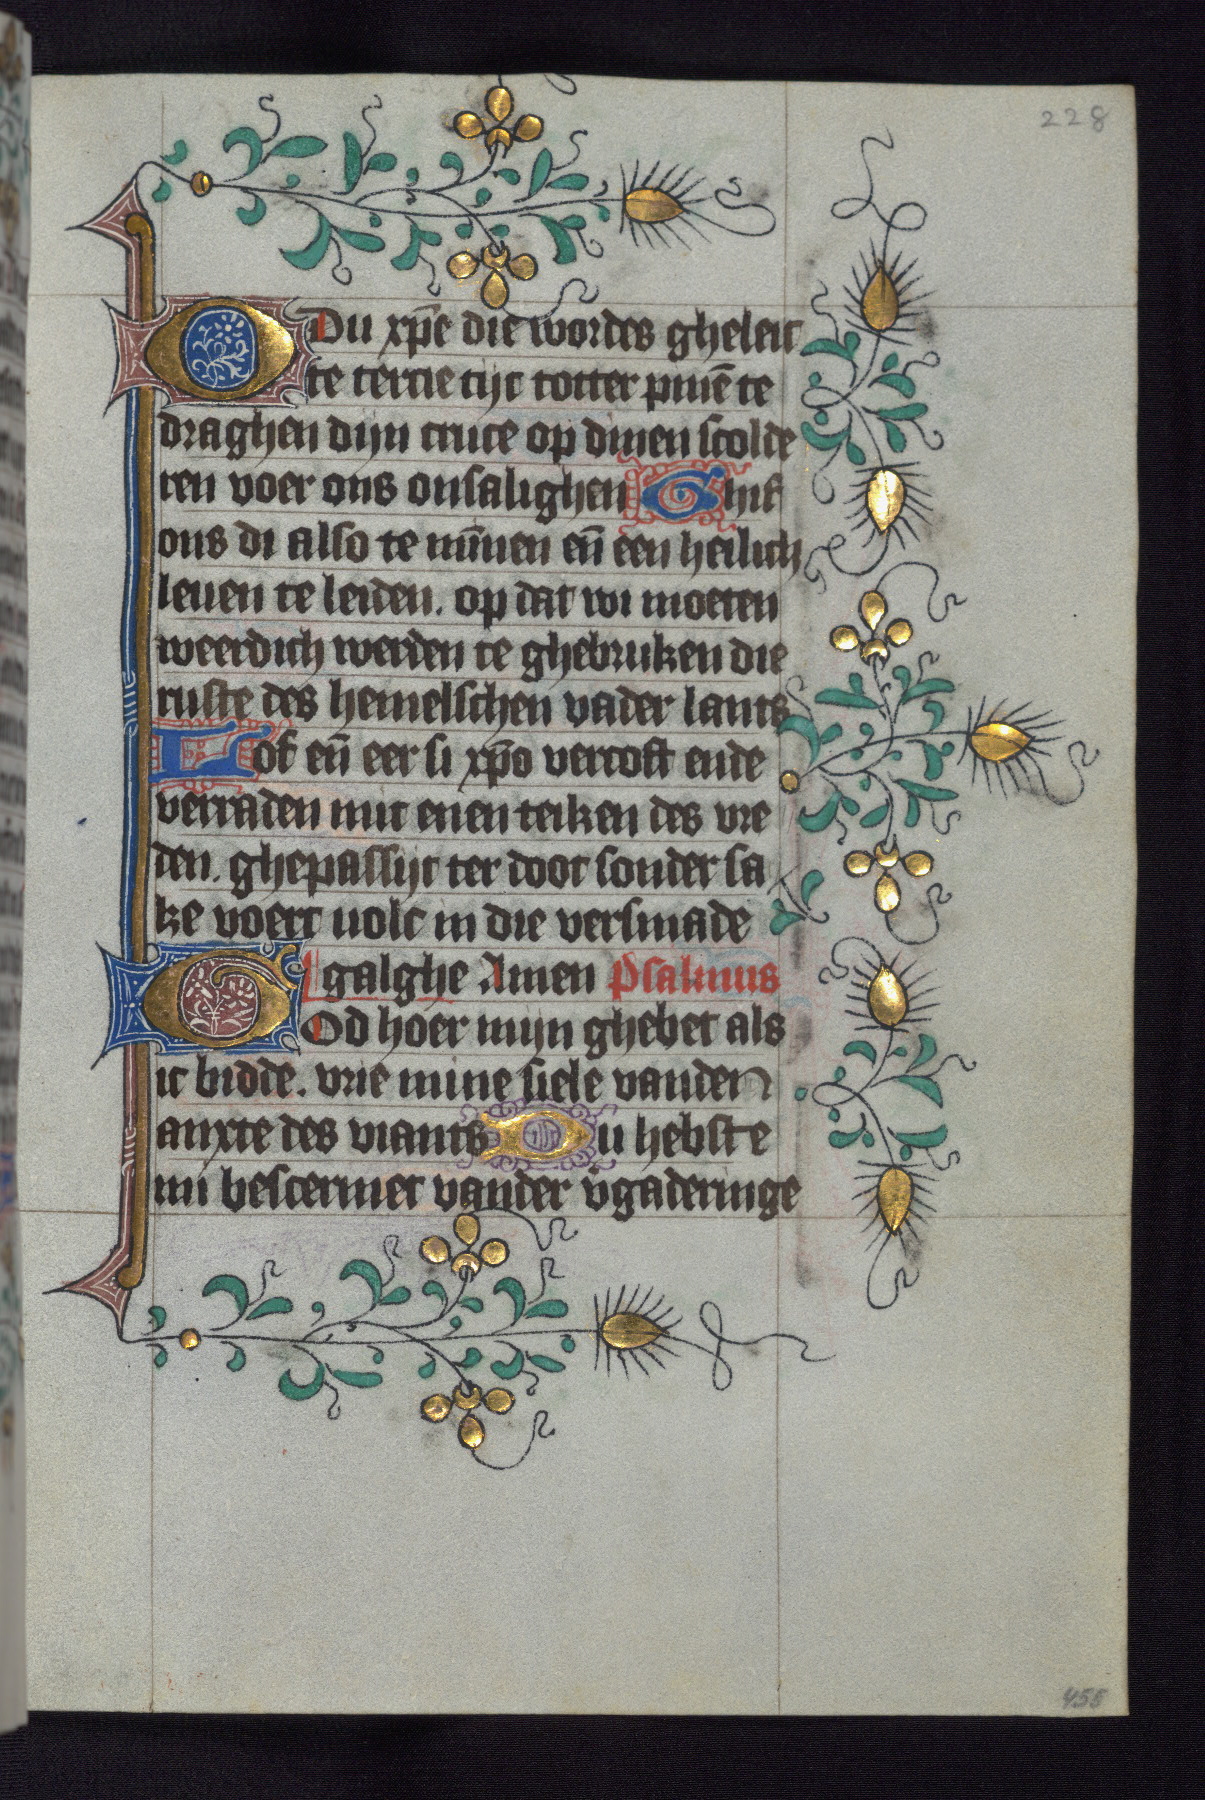 228
Ou xp̄e die wordes gheleit
te tercie tijt totter pinē te
draghen dijn cruce op dinen scolde
ren voer ons onsalighen Ghif
ons di also te mīnen eñ een heilich
leuen te leiden. op dat wi moeten
weerdich werden te ghebruken die
ruste des hemelschen vader lants
Lof eñ eer si xp̄o vercoft ende
verraden mit enen teiken des vre
den. ghepassijt ter doot sonder sa
ke voert uolc in die versmade
galghe Amen Psalmus
God hoer mijn ghebet als
ic bidde. vrie mine siele vanden
anxte des viants Du hebste
mi bescermet vander v̄gaderinge
455